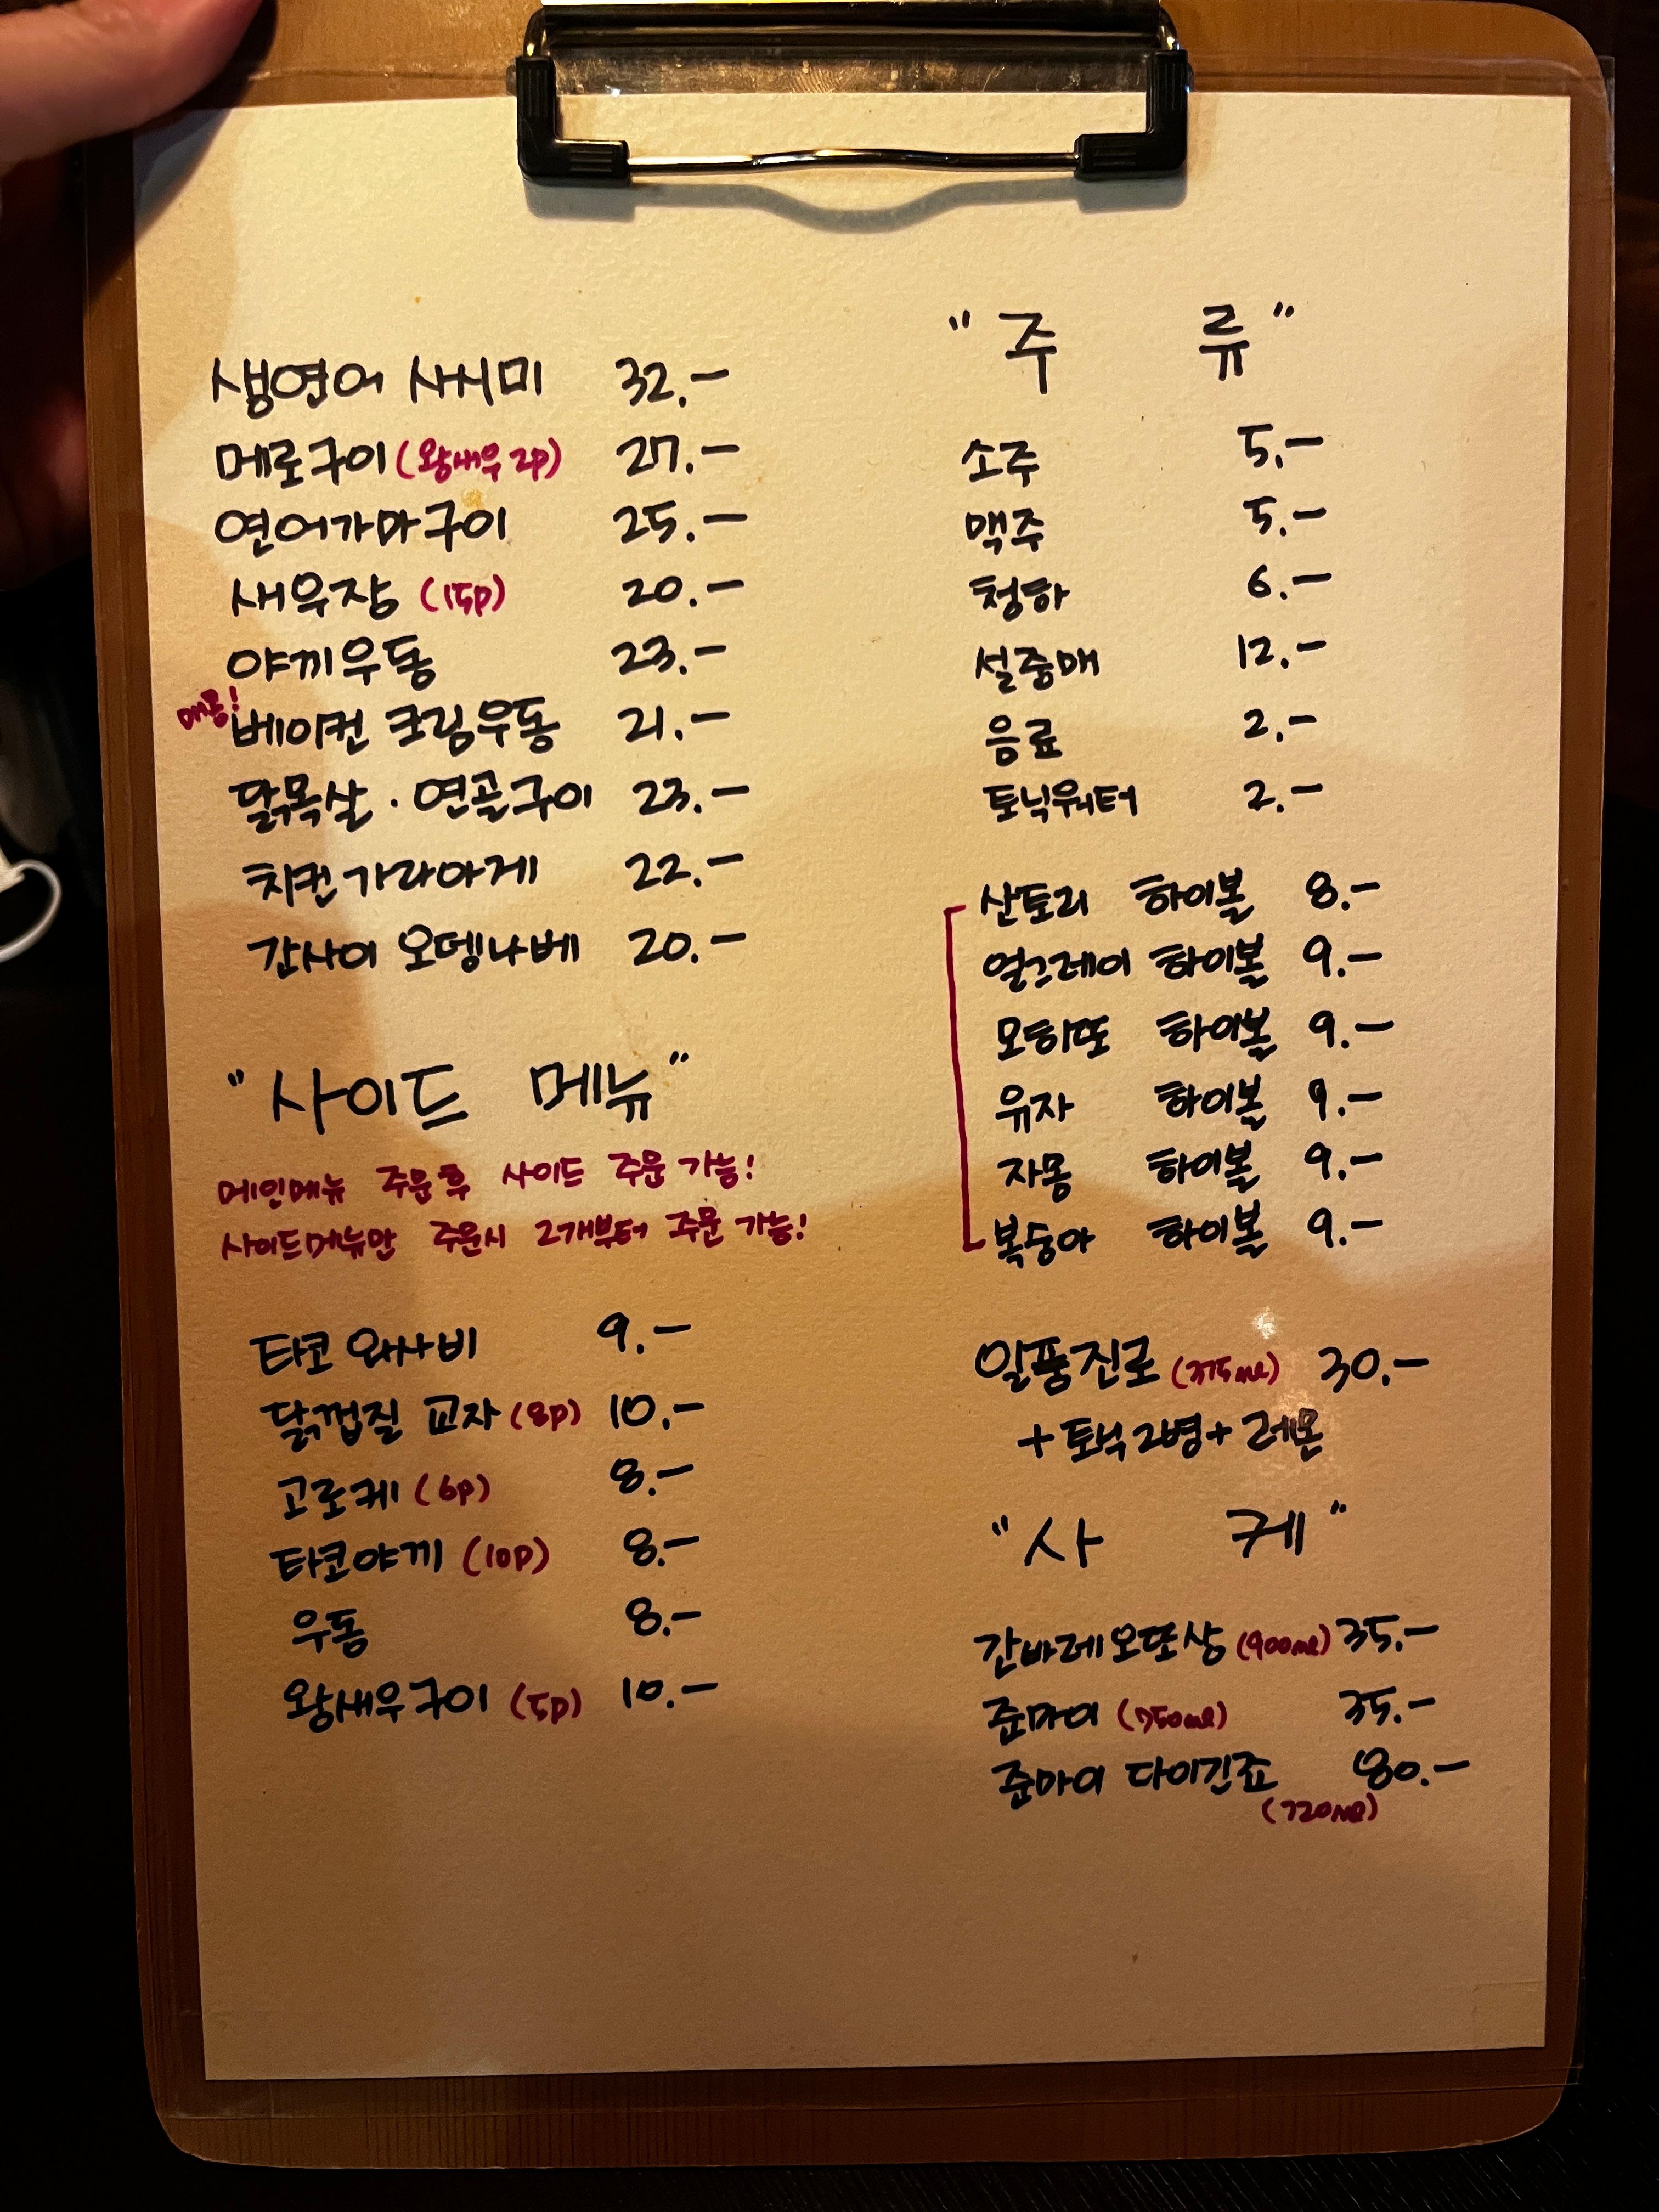 생연어 사시미 32.-
메로구이 (왕새우 2p) 27.-
연어가마구이 25.-
새우장 (15p) 20.-
야끼우동 23.-
매콤! 베이컨 크림우동 21.-
닭목살 · 연골구이 23.-
치킨 가라아게 22.-
간사이 오뎅나베 20.-
"사이드 메뉴"
메인메뉴 주문후 사이드 주문 가능!
사이드메뉴만 주문시 2개부터 주문 가능!
타코 와사비 9.-
닭껍질 교자 (8p) 10.-
고로케 (6p) 8.-
타코야끼 (10p) 8.-
우동 8.-
왕새우구이 (5p) 10.-
"주 류"
소주 5.-
맥주 5.-
청하 6.-
설중매 12.-
음료 2.-
토닉워터 2.-
산토리 하이볼 8.-
얼그레이 하이볼 9.-
모히또 하이볼 9.-
유자 하이볼 9.-
자몽 하이볼 9.-
복숭아 하이볼 9.-
일품진로 (375ml) 30.-
+ 토닉 2병 + 레몬
"사 케"
간바레오또상 (900ml) 35.-
준마이 (750ml) 35.-
준마이 다이긴죠 80.-
(720ml)